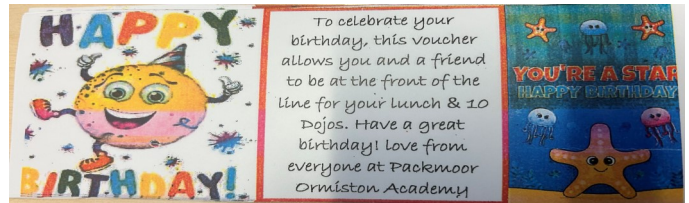 HAPPY
BIRTHDAY!
To celebrate your
birthday, this voucher
allows you and a friend
to be at the front of the
line for your lunch & 10
Dojos. Have a great
birthday! Love from
everyone at Packmoor
Ormiston Academy
YOU'RE A STAR
HAPPY BIRTHDAY